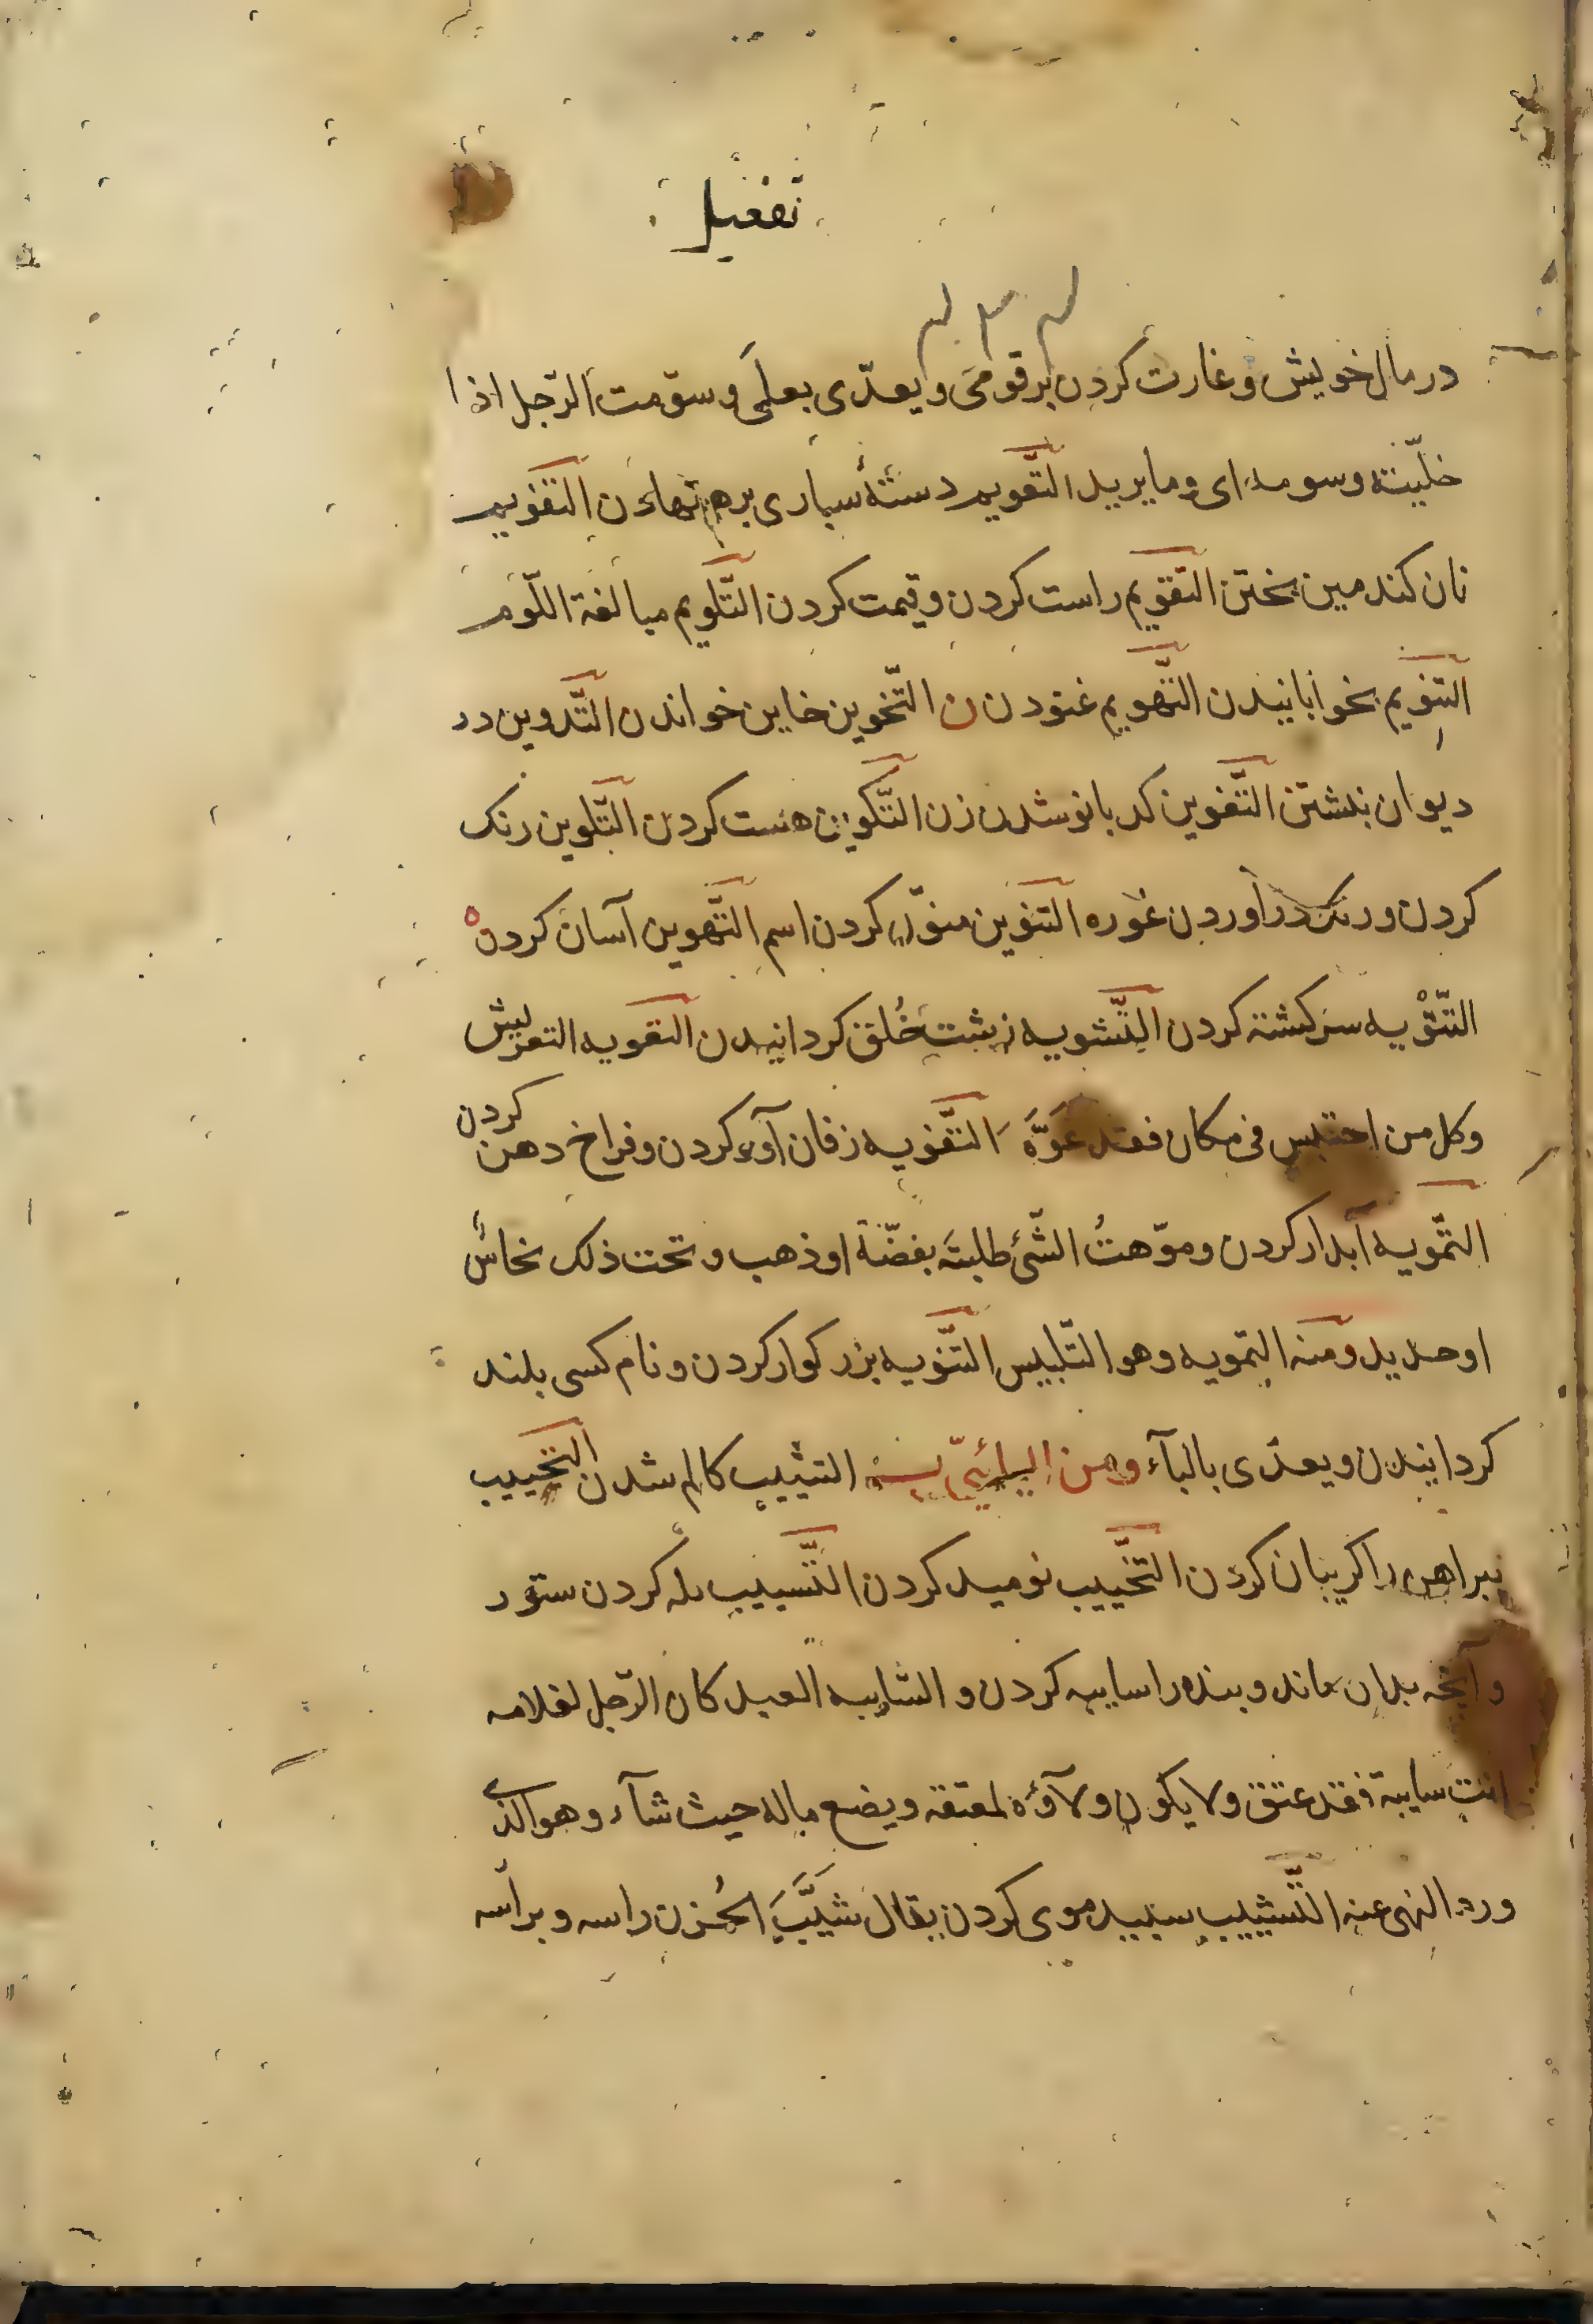 تفعیل
در مال خویش و غارت کردن بر قومی و یعدّی بعلی و سوّمت الرّجل اذا
خلّیته وسومه ای وما یرید التّقویم دستهٔ سپاری برهم نهادن التّفویم
نان کندمین بختن التّقویم راست کردن و قیمت کردن التّلویم مبالغة اللّوم
التنویم بخوابانیدن التّهویم غنودن ن التّخوین خاین خواندن التّدوین در
دیوان نبشتن التّعوین کدبانو شدن زن التّکوین هست کردن التّلوین رنک
کردن و رنک دراوردن غوره التنوین منوّن کردن اسم التّهوین آسان کردن ه
التّتویه سرکشته کردن التّشویه زشت خُلق کردانیدن التعویه التعریش
وکل من احتبس فی مکان فقد عَوَّهَ التّفویه زفان آور کردن و فراخ دهن کردن
التّمویه آبدار کردن و موّهتُ الشّیٔ طلیته بفضّة او ذهب و تحت ذلک نحاسٌ
اوحدید ومنه التمویه وهو التّلبیس التّنویه بزرکوار کردن و نام کسی بلند
کردانیدن و یعدّی بالبآء ومن الیائیّ ب التثییب کالم شدن التجییب
پیراهن را کریبان کردن التخّییب نومید کردن التّسییب یله کردن ستور
وآنچه بدان ماند و بنده را سایبه کردن و السّایبه العبد کان الرّجل لغلامه
انت سایبة فقد عتق ولا یکون ولآؤه لمعتقه ویضع ماله حیث شآء وهو الذی
ورد النهی عنه التّشییب سپید موی کردن یقال شَیَّبَ الحُزن راسه وبرأسه